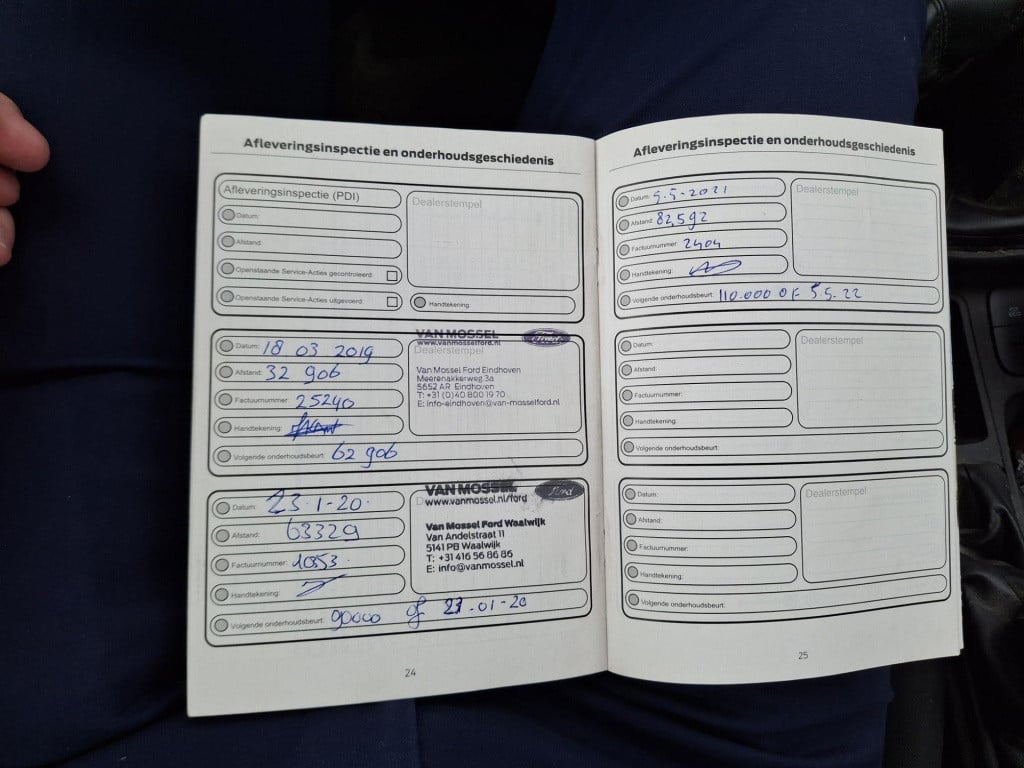 Afleveringsinspectie en onderhoudsgeschiedenis
Afleveringsinspectie (PDI)
Dealerstempel
Datum:
Afstand:
Openstaande Service-Acties gecontroleerd:
Openstaande Service-Acties uitgevoerd:
Handtekening:
Datum: 18 03 2019
Afstand: 32 906
Factuurnummer: 25240
Handtekening:
Volgende onderhoudsbeurt: 62 906
VAN MOSSEL
www.vanmosselford.nl
Ford
Dealerstempel
Van Mossel Ford Eindhoven
Meerenakkerweg 3a
5652 AR Eindhoven
T: +31 (0)40 800 19 70
E: info-eindhoven@van-mosselford.nl
Datum: 23-1-20.
Afstand: 63329
Factuurnummer: 10353.
Handtekening:
Volgende onderhoudsbeurt: 90000 of 23-01-20
VAN MOSSEL
www.vanmossel.nl/ford
Ford
Van Mossel Ford Waalwijk
Van Andelstraat 11
5141 PB Waalwijk
T: +31 416 56 86 86
E: info@vanmossel.nl
24
Afleveringsinspectie en onderhoudsgeschiedenis
Datum: 5-5-2021
Afstand: 82,592
Factuurnummer: 2404
Handtekening:
Volgende onderhoudsbeurt: 110.000 OF 5 5. 22
Dealerstempel
Datum:
Afstand:
Factuurnummer:
Handtekening:
Volgende onderhoudsbeurt:
Dealerstempel
Datum:
Afstand:
Factuurnummer:
Handtekening:
Volgende onderhoudsbeurt:
Dealerstempel
25